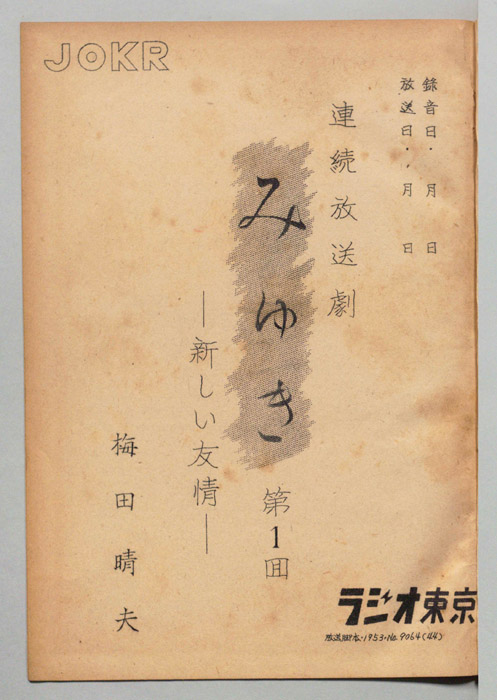 JOKR
録音日・　月　日
放送日・　月　日
連続放送劇
みゆき
第1回
―新しい友情―
梅田晴夫
ラジオ東京
放送脚本・1953・No.9064(44)